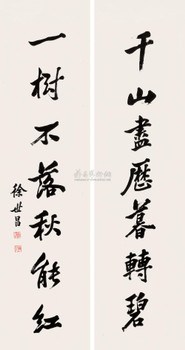 千山盡歷暮轉碧
一樹不落秋能紅
徐世昌